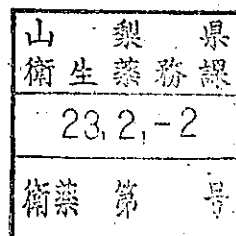 山梨県
衛生薬務課
23.2.-2
衛薬第 号